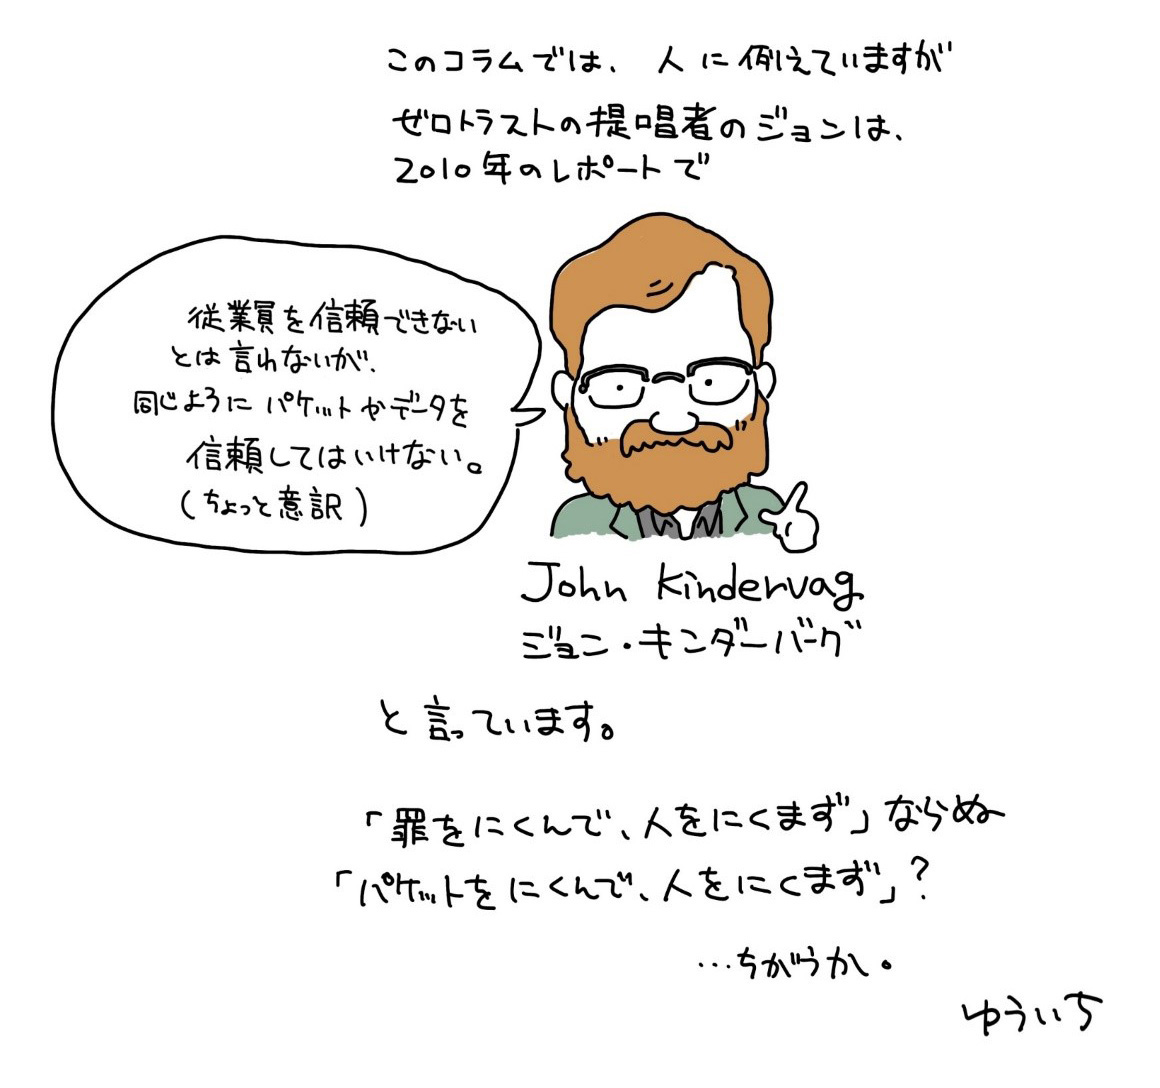 このコラムでは、人に例えていますが
ゼロトラストの提唱者のジョンは、
2010年のレポートで
従業員を信頼できない
とは言わないが、
同じようにパケットやデータを
信頼してはいけない。
(ちょっと意訳)
John Kindervag
ジョン・キンダーバーグ
と言っています。
「罪をにくんで、人をにくまず」ならぬ
「パケットをにくんで、人をにくまず」？
…ちがうか。
ゆういち